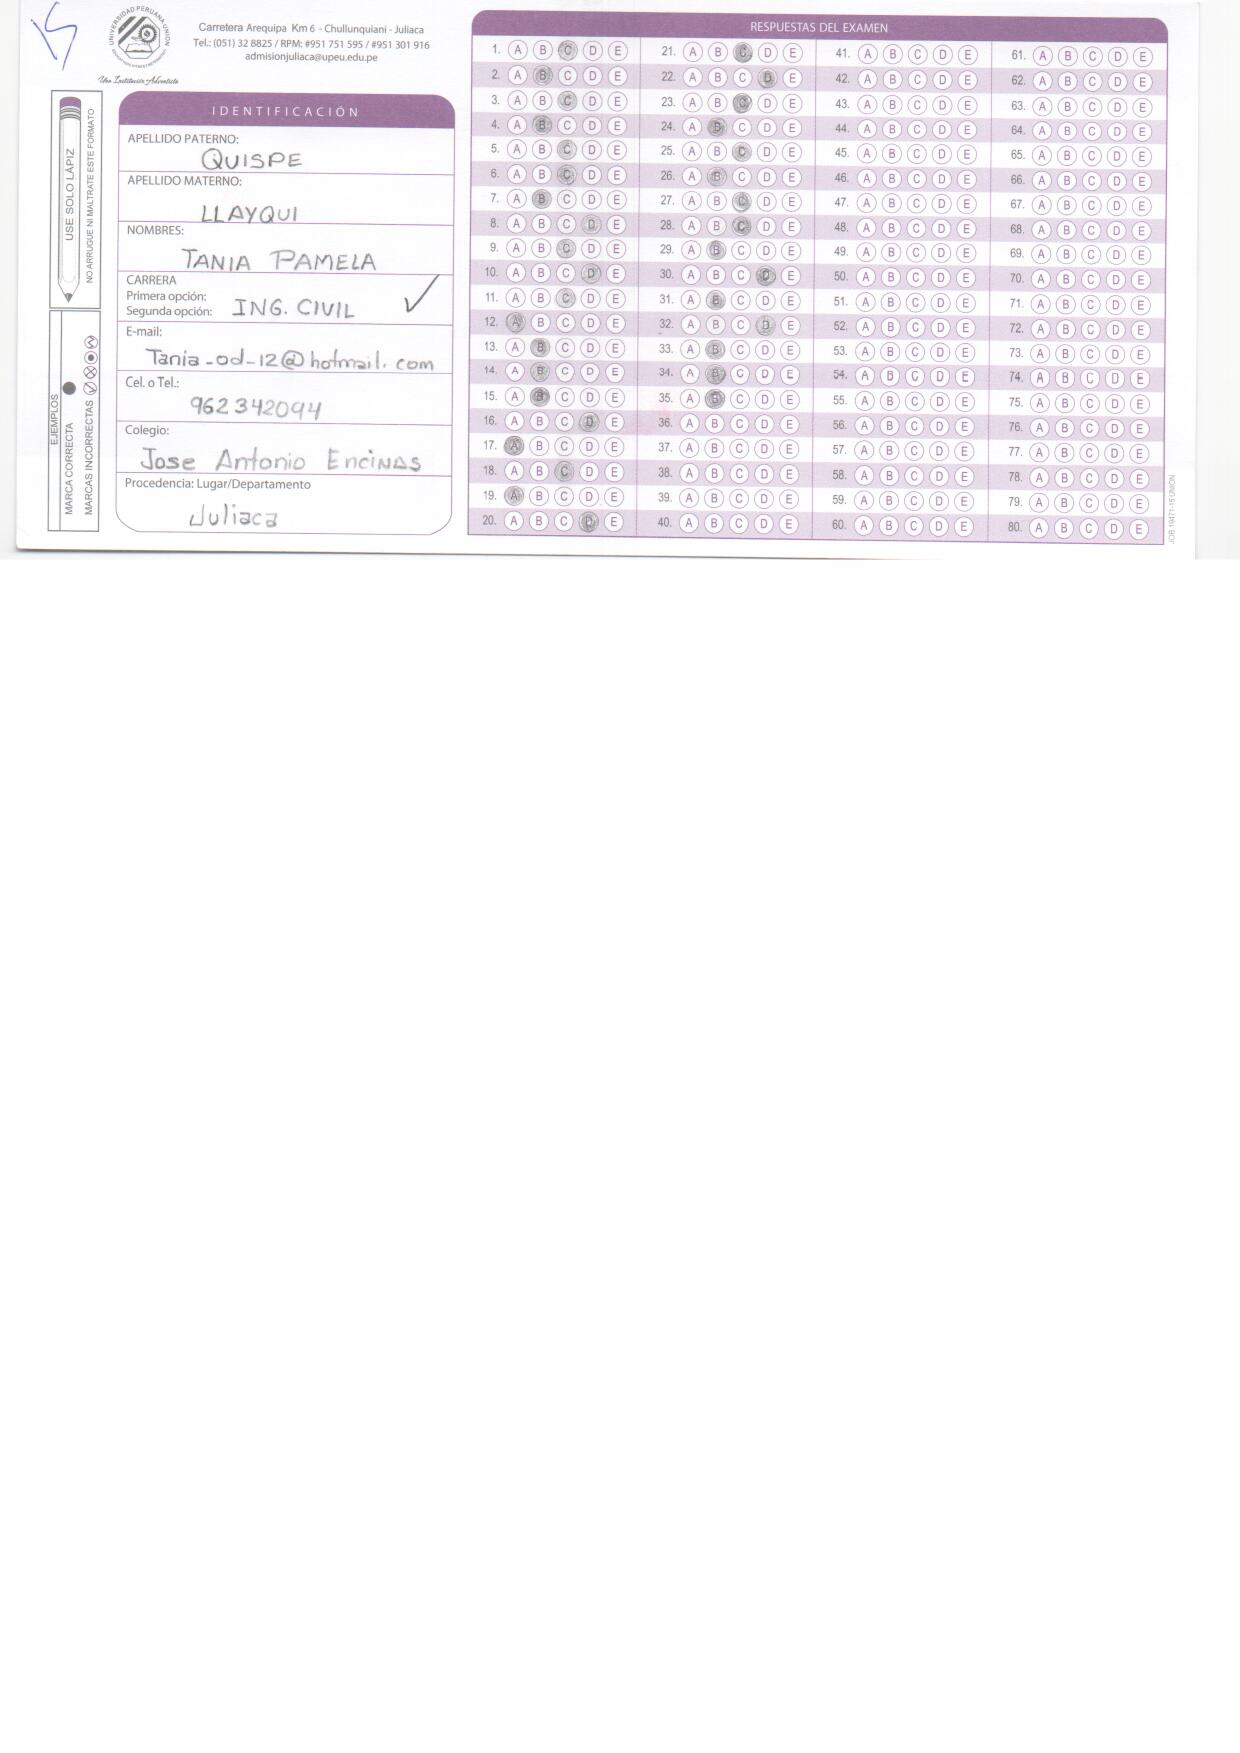 UNIVERSIDAD PERUANA UNION
Una Institución Adventista
Carretera Arequipa Km 6 - Chullunquiani - Juliaca
Tel.: (051) 32 8825 / RPM: #951 751 595 / #951 301 916
admisionjuliaca@upeu.edu.pe
USE SOLO LÁPIZ
NO ARRUGUE NI MALTRATE ESTE FORMATO
EJEMPLOS
MARCA CORRECTA
MARCAS INCORRECTAS
IDENTIFICACIÓN
APELLIDO PATERNO:
QUISPE
APELLIDO MATERNO:
LLAYQUI
NOMBRES:
TANIA PAMELA
CARRERA
Primera opción:
Segunda opción: ING. CIVIL
E-mail:
Tania_od_12@hotmail.com
Cel. o Tel.:
962342094
Colegio:
Jose Antonio Encinas
Procedencia: Lugar/Departamento
Juliaca
RESPUESTAS DEL EXAMEN
1. A B C D E 21. A B C D E 41. A B C D E 61. A B C D E
2. A B C D E 22. A B C D E 42. A B C D E 62. A B C D E
3. A B C D E 23. A B C D E 43. A B C D E 63. A B C D E
4. A B C D E 24. A B C D E 44. A B C D E 64. A B C D E
5. A B C D E 25. A B C D E 45. A B C D E 65. A B C D E
6. A B C D E 26. A B C D E 46. A B C D E 66. A B C D E
7. A B C D E 27. A B C D E 47. A B C D E 67. A B C D E
8. A B C D E 28. A B C D E 48. A B C D E 68. A B C D E
9. A B C D E 29. A B C D E 49. A B C D E 69. A B C D E
10. A B C D E 30. A B C D E 50. A B C D E 70. A B C D E
11. A B C D E 31. A B C D E 51. A B C D E 71. A B C D E
12. A B C D E 32. A B C D E 52. A B C D E 72. A B C D E
13. A B C D E 33. A B C D E 53. A B C D E 73. A B C D E
14. A B C D E 34. A B C D E 54. A B C D E 74. A B C D E
15. A B C D E 35. A B C D E 55. A B C D E 75. A B C D E
16. A B C D E 36. A B C D E 56. A B C D E 76. A B C D E
17. A B C D E 37. A B C D E 57. A B C D E 77. A B C D E
18. A B C D E 38. A B C D E 58. A B C D E 78. A B C D E
19. A B C D E 39. A B C D E 59. A B C D E 79. A B C D E
20. A B C D E 40. A B C D E 60. A B C D E 80. A B C D E
JOB 19471-15 UNION